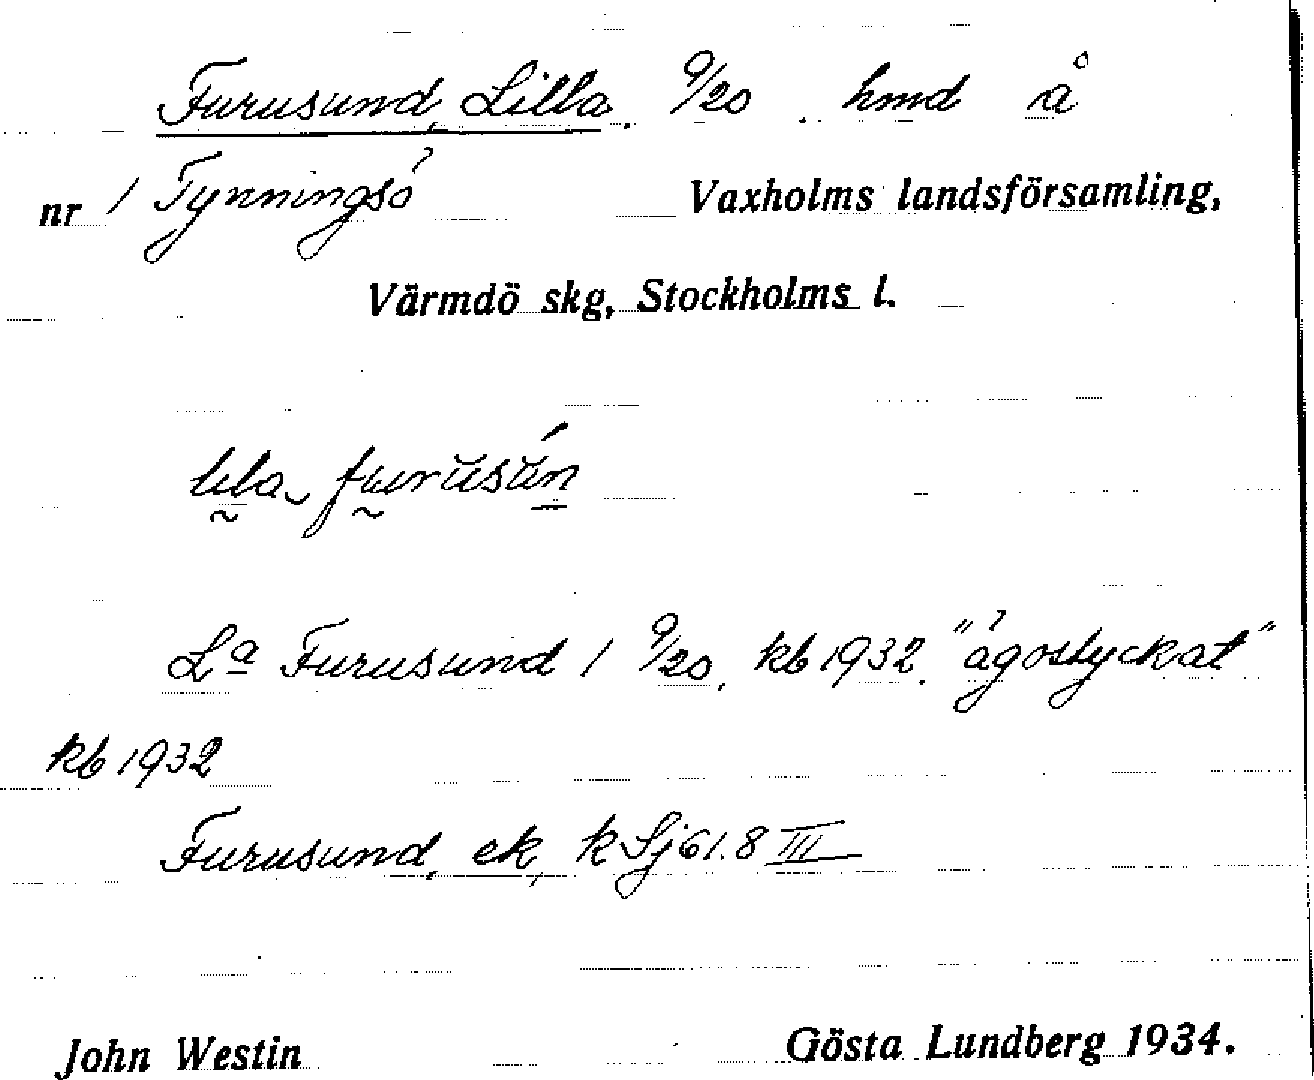 Furusund, Lilla, 9/20 hmd å
nr 1 Tynningsö Vaxholms landsförsamling,
Värmdö skg, Stockholms l.
lila furusún
Lª Furusund 1 9/20, kb 1932. "ägostyckat"
kb 1932
Furusund, ek, k Sj 61.8 III
John Westin Gösta Lundberg 1934.